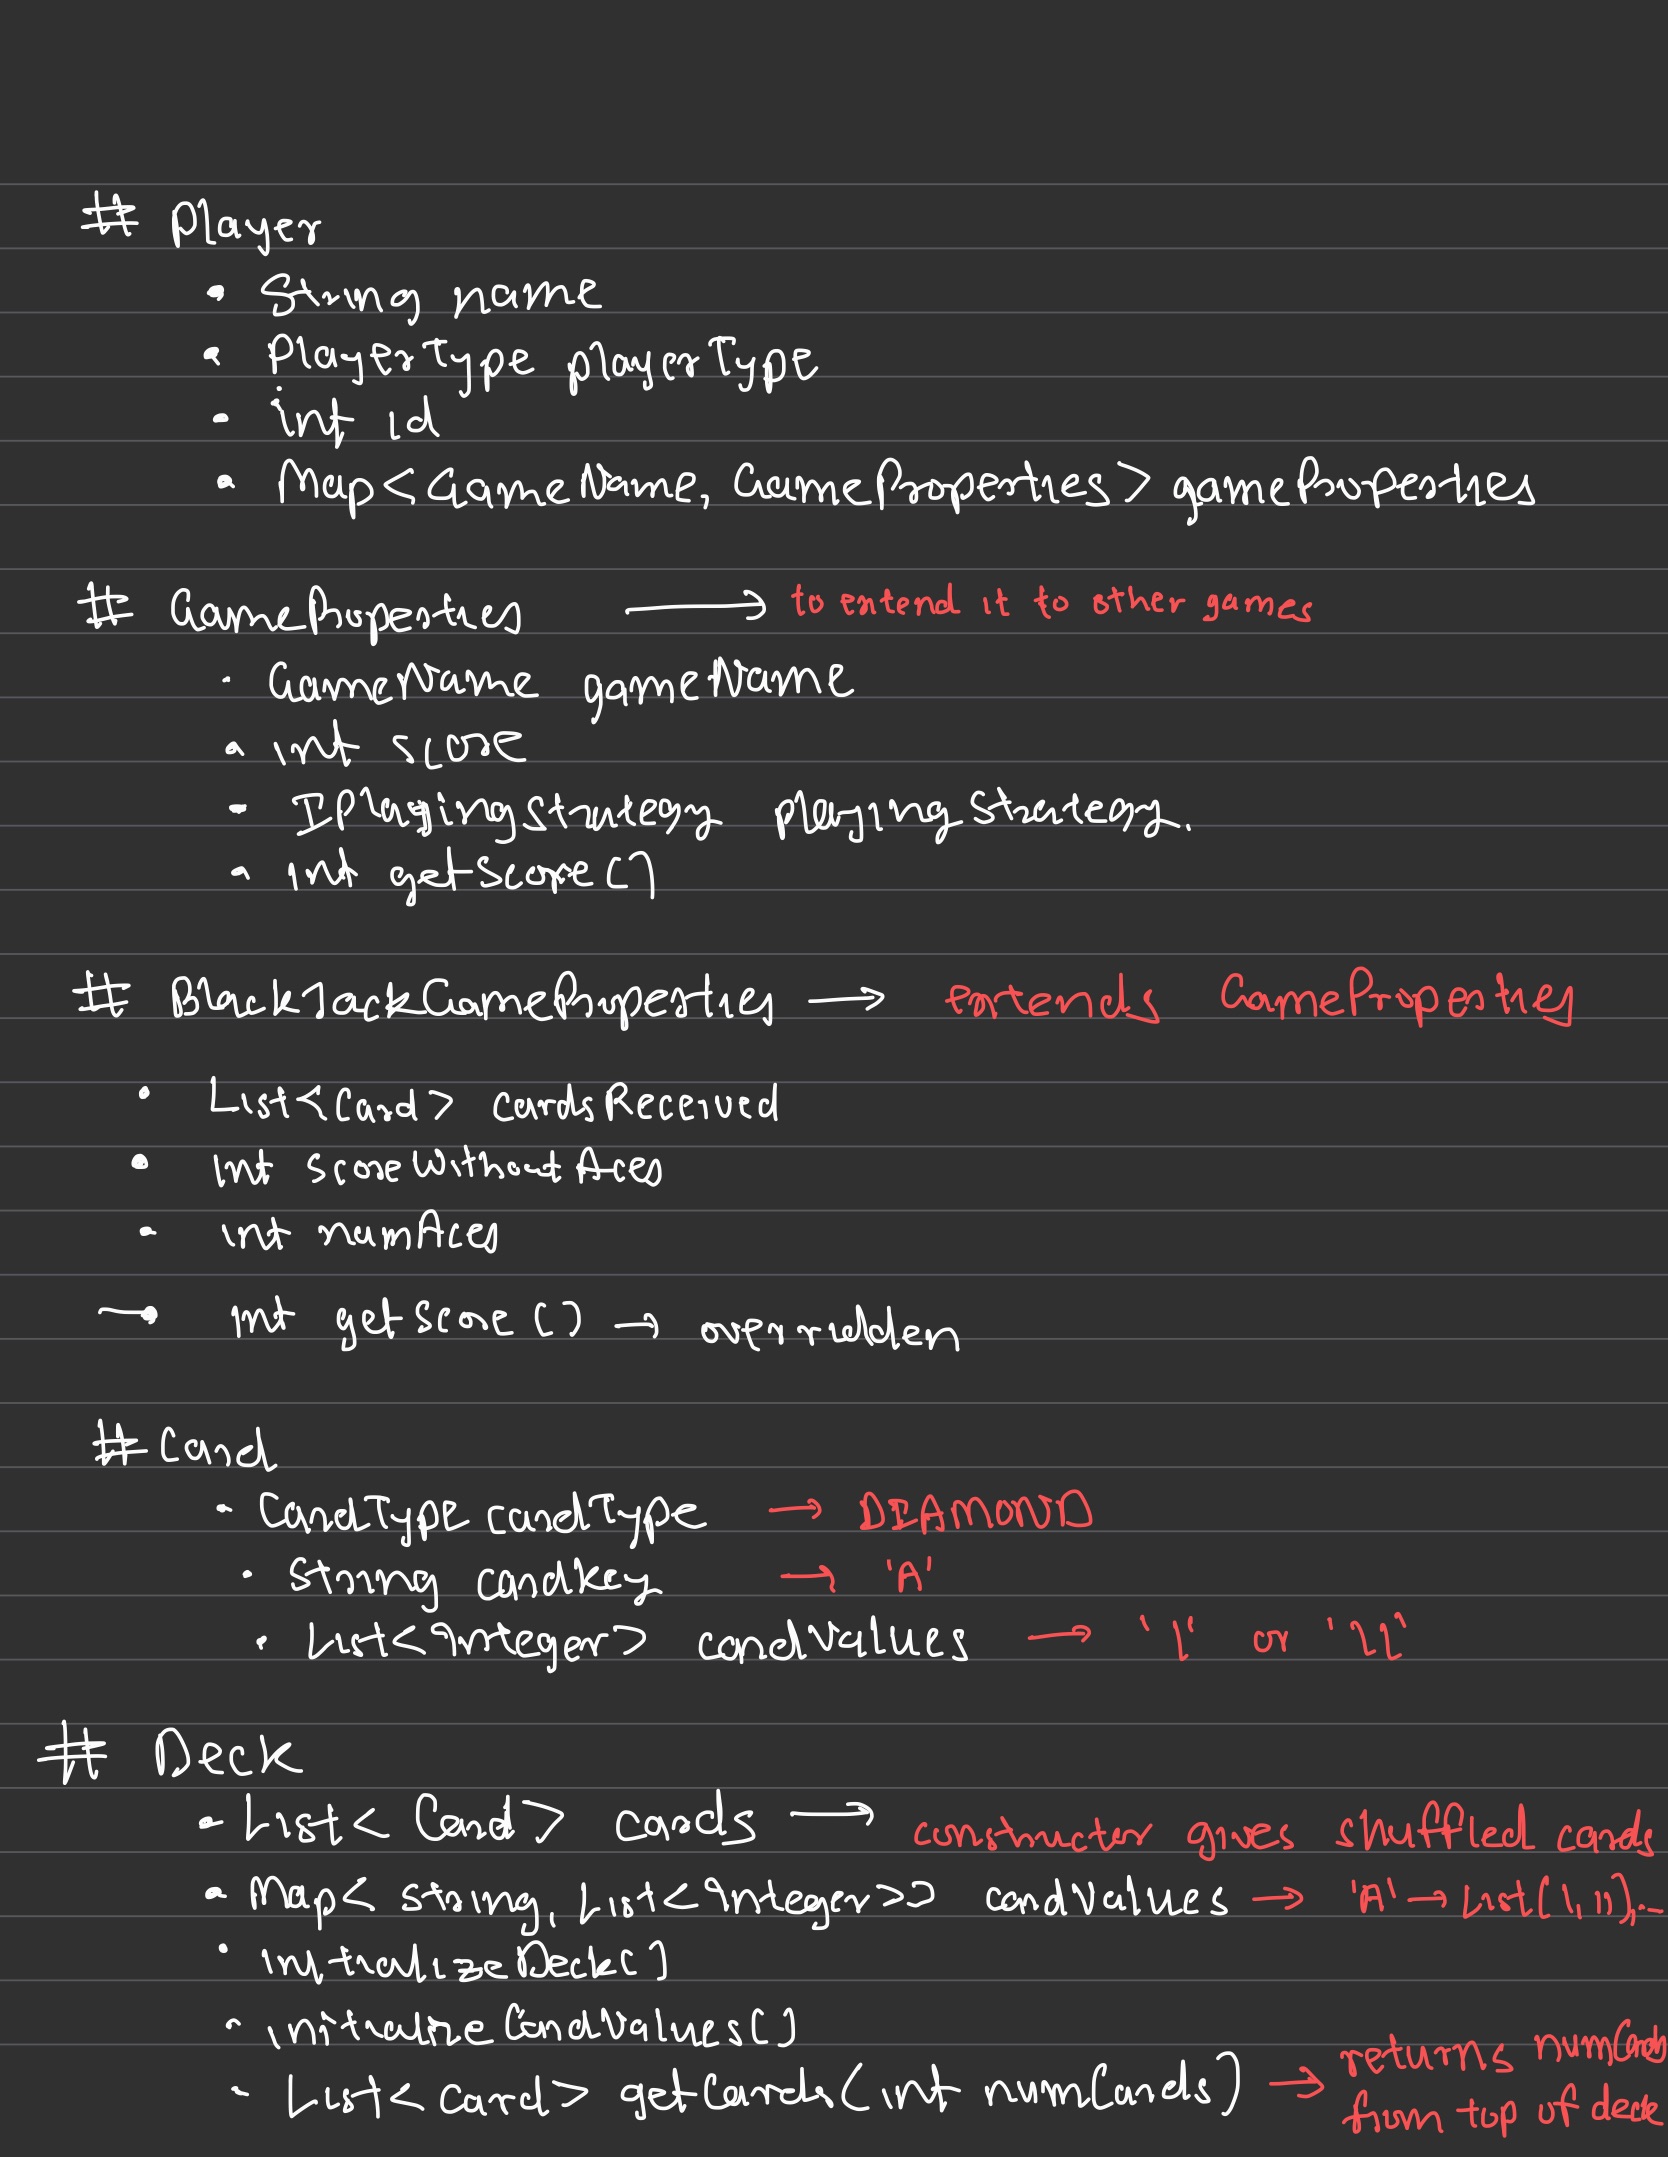 # Player
• String name
• PlayerType playerType
• int id
• Map<GameName, GameProperties> gameProperties
# GameProperties → to extend it to other games
• GameName gameName
• int score
• IPlayingStrategy playingStrategy.
• int getScore()
# BlackJackGameProperties → extends GameProperties
• List<Card> cardsReceived
• int scoreWithoutAces
• int numAces
→ int getScore() → overridden
# Card
• CardType cardType → DIAMOND
• String cardKey → 'A'
• List<Integer> cardValues → '1' or '11'
# Deck
• List<Card> cards → constructor gives shuffled cards
• Map<string, List<Integer>> cardValues → 'A' → List(1,11),..
• initializeDeck()
• initializeCardValues()
• List<Card> getCards(int numCards) → returns numCards
from top of deck